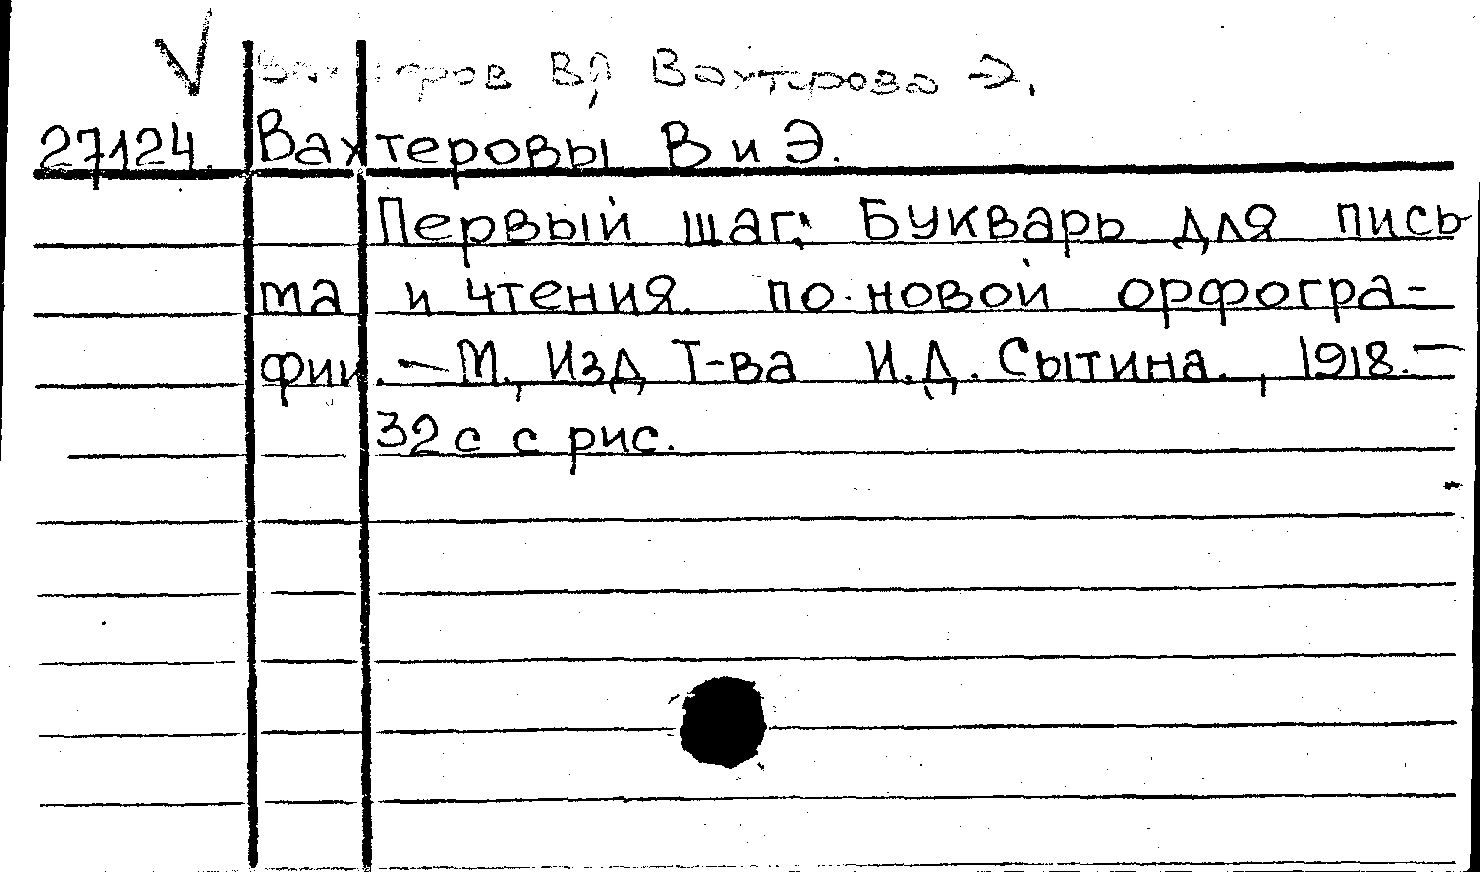 Вахтеров В, Вахтерова Э.
27124. Вахтеровы В и Э.
Первый шаг: Букварь для пись
ма и чтения по новой орфогра-
фии. — М., Изд Т-ва И.Д. Сытина., 1918. —
32 с с рис.